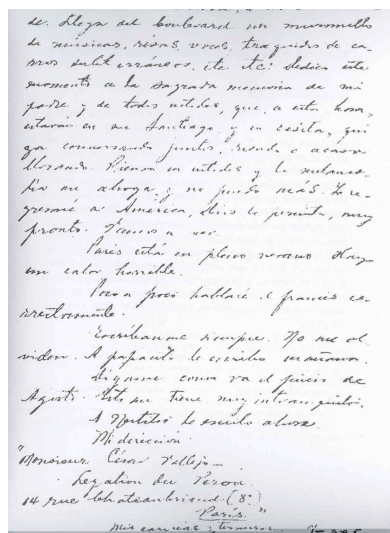 de. Llega del boulevard un murmullo
de músicas, risas, voces, traquidos de ca-
rros subterráneos, etc etc. Dedico este
momento a la sagrada memoria de mi
padre y de todos ustedes, que, a esta hora,
estarán en su Santiago, y en casita, qui
zá conversando juntos, riendo o acaso
llorando. Pienso en ustedes y la melanco-
lía me ahoga, y no puedo más. Yo re-
gresaré a América, Dios lo permita, muy
pronto. Vamos a ver.
París está en pleno verano. Hace
un calor horrible.
Poco a poco hablaré el francés co-
rrectamente.
Escríbanme siempre. No me ol
viden. A papacito le escribo mañana.
Díganme cómo va el juicio de
Agosti. Esto me tiene muy intranquilo.
A Néstor le escribo ahora.
Mi dirección:
"Monsieur César Vallejo—
Legation du Perou.
14 rue Chateaubriand (8e
Paris."